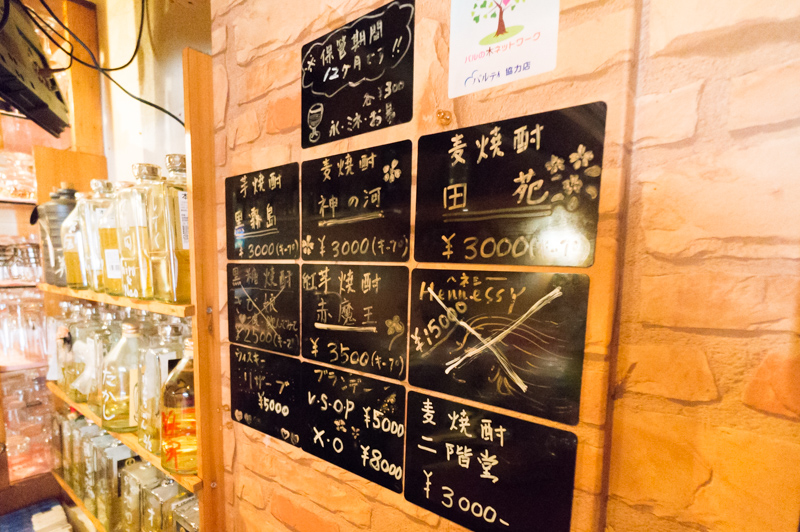 バルの木ネットワーク
バルテ 協力店
※保管期間
12ヶ月です!!
¥300
氷・ミネ・お湯
芋焼酎
黒霧島
¥3000(キープ)
麦焼酎
神の河
¥3000(キープ)
麦焼酎
田苑
¥3000
黒糖焼酎
¥2500(キープ)
紅芋焼酎
赤魔王
¥3500(キープ)
ヘネシー
Hennessy
¥15000
ウィスキー
リザーブ
¥5000
ブランデー
V.S.O.P ¥5000
X.O ¥8000
麦焼酎
二階堂
¥3000-